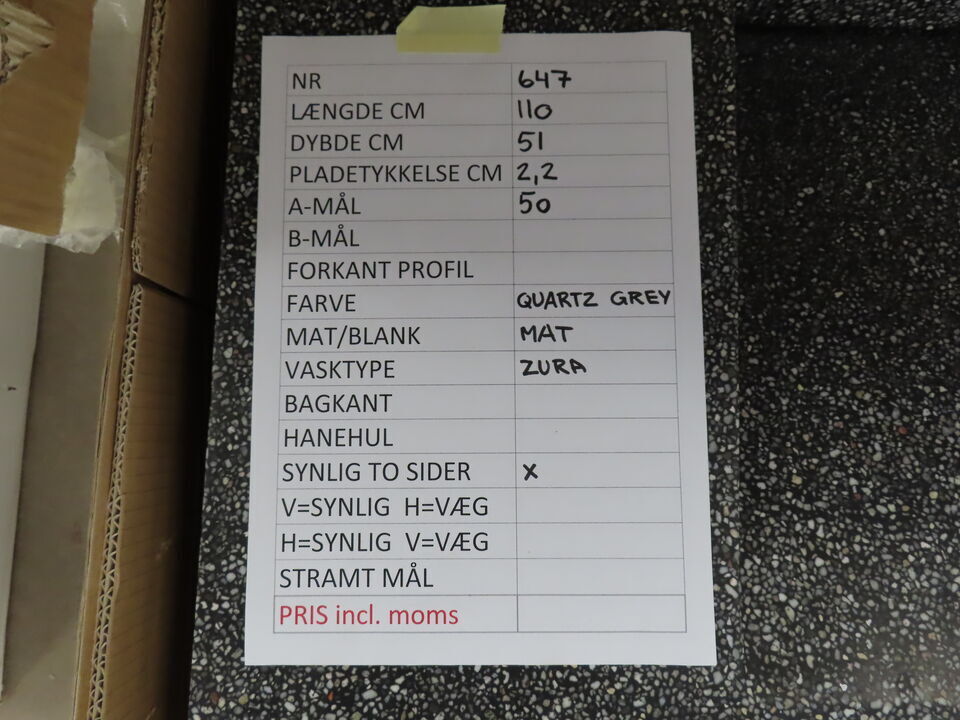 NR 647
LÆNGDE CM 110
DYBDE CM 51
PLADETYKKELSE CM 2,2
A-MÅL 50
B-MÅL
FORKANT PROFIL
FARVE QUARTZ GREY
MAT/BLANK MAT
VASKTYPE ZURA
BAGKANT
HANEHUL
SYNLIG TO SIDER X
V=SYNLIG H=VÆG
H=SYNLIG V=VÆG
STRAMT MÅL
PRIS incl. moms